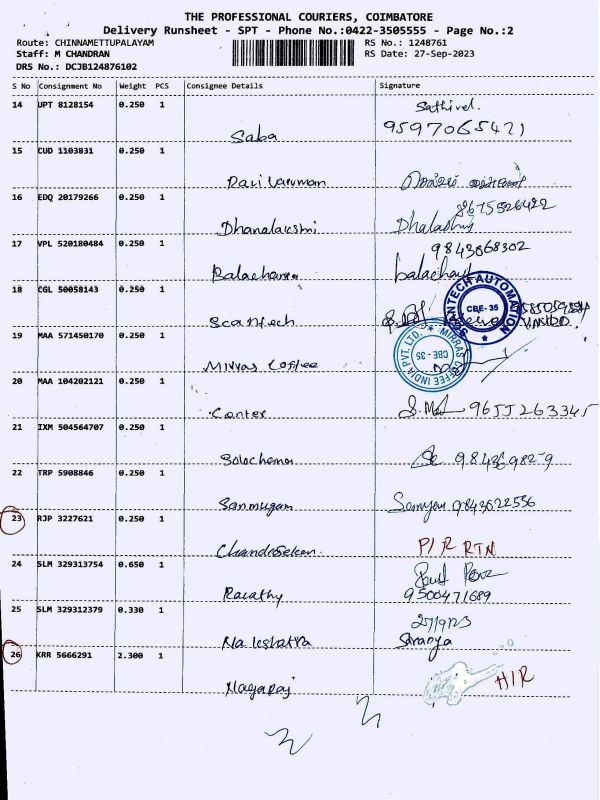 THE PROFESSIONAL COURIERS, COIMBATORE
Delivery Runsheet - SPT - Phone No.:0422-3505555 - Page No.:2
Route: CHINNAMETTUPALAYAM
Staff: M CHANDRAN
DRS No.: DCJB124876102
RS No.: 1248761
RS Date: 27-Sep-2023
S No Consignment No Weight PCS Consignee Details Signature
14 UPT 8128154 0.250 1 Sathivel.
Saba 9597065421
15 CUD 1103831 0.250 1
Ravi Varuman
16 EDQ 20179266 0.250 1 8675526422
Dhanalakshmi
17 VPL 520180484 0.250 1 9843068302
Balachanra
18 CGL 50058143 0.250 1 SCANTECH AUTOMATION CBE-35
Scantech
19 MAA 571450170 0.250 1 MIRRAS COFFEE INDIA PVT. LTD. CBE-35
Mirras Coffee
20 MAA 104202121 0.250 1
Canter 9655263345
21 IXM 504564707 0.250 1
Solochena
22 TRP 5908846 0.250 1
Sanmugam 9843622556
23 RJP 3227621 0.250 1
Chandrseken P/R RTN
24 SLM 329313754 0.650 1
Parathy 9500471689
25 SLM 329312379 0.330 1 25/9/23
Nakshatra Saranya
26 KRR 5666291 2.300 1 H/R
Nagaraj